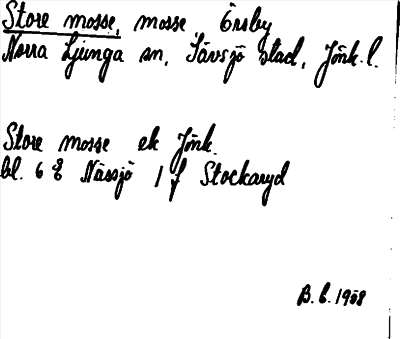 Store mosse, mosse, Örsby
Norra Ljunga sn, Sävsjö stad, Jönk. l.
Store mosse ek Jönk.
bl. 6 E Nässjö 1 f Stockaryd
B. b. 1958